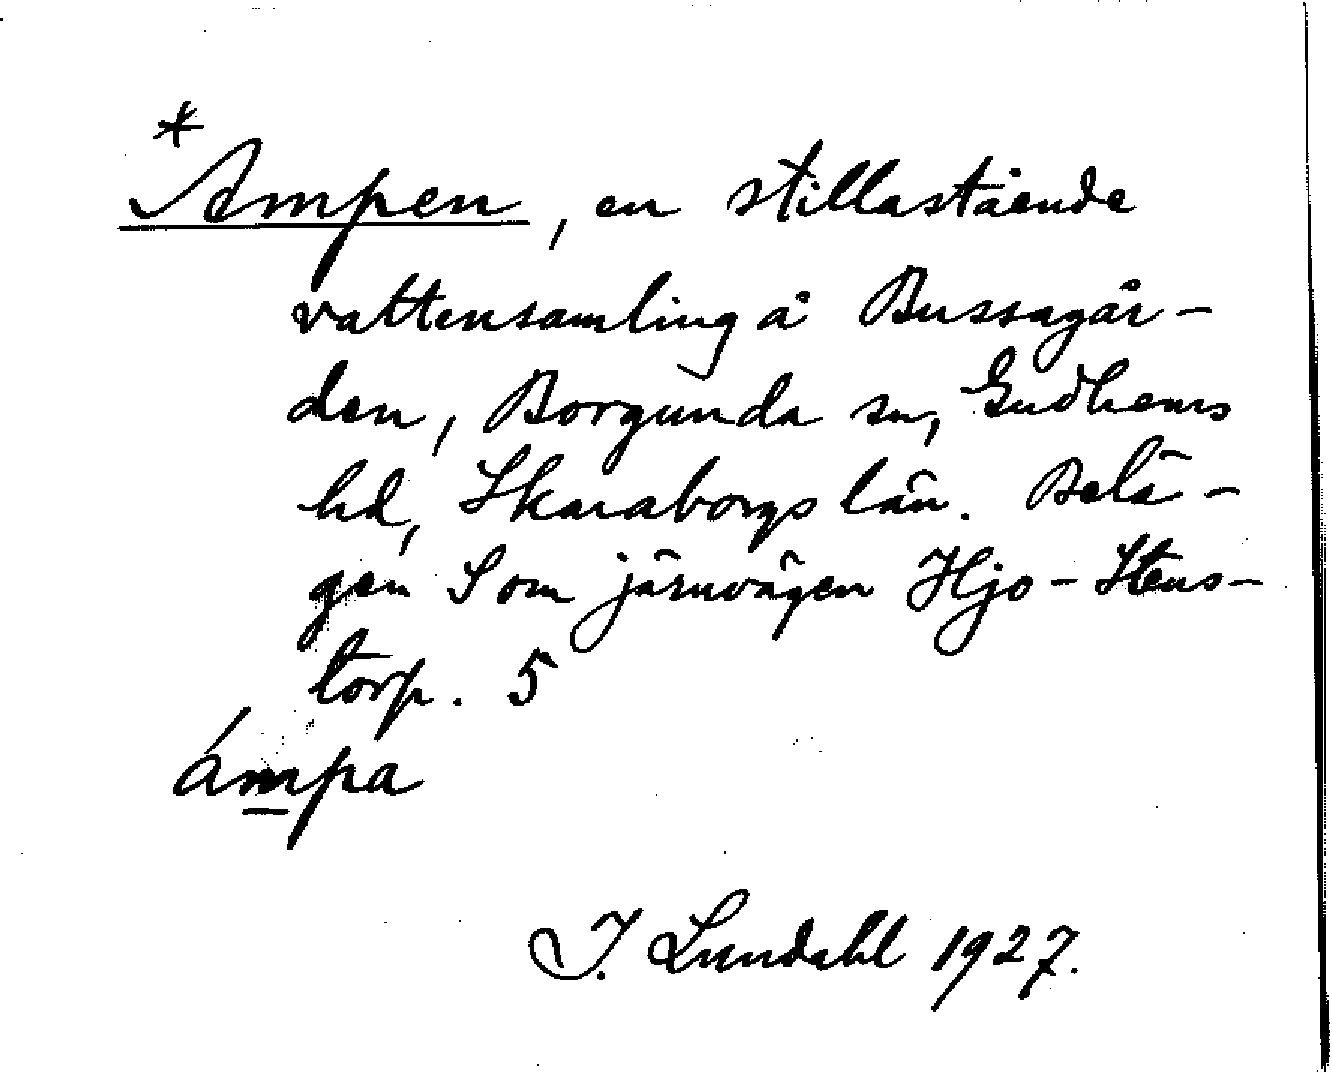 *Ampen, en stillastående
vattensamling å Bussagår-
den, Borgunda sn, Gudhems
hd, Skaraborgs län. Belä-
gen S om järnvägen Hjo-Stens-
torp. 5
ámpa
I. Lundahl 1927.